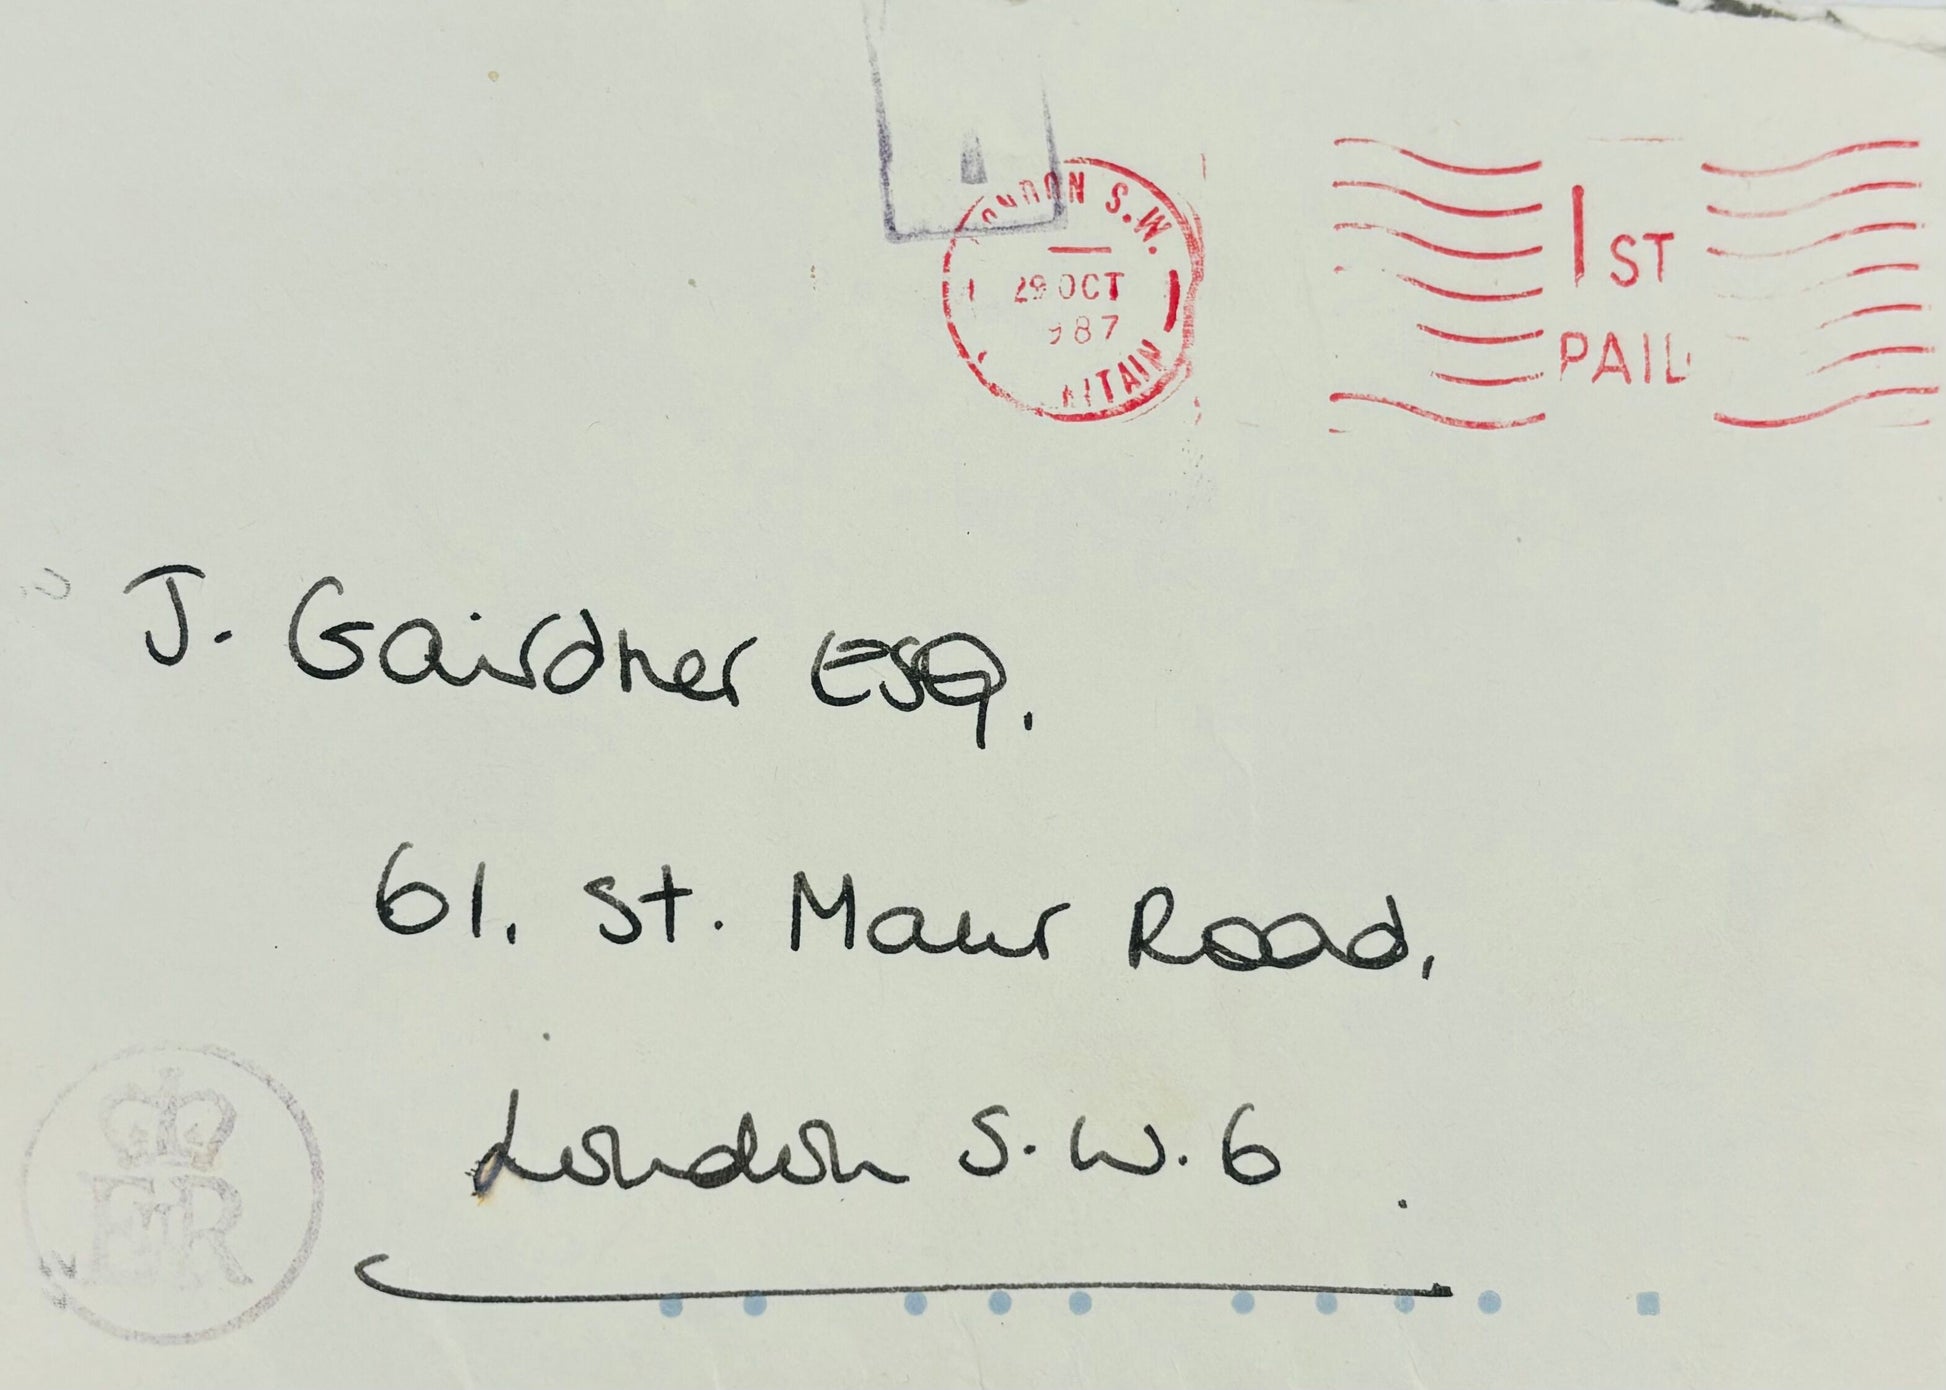 LONDON S.W.
29 OCT
987
1ST
PAID
J. Gairdner ESQ.
61, St. Maur Road,
London S.W.6
EIIR